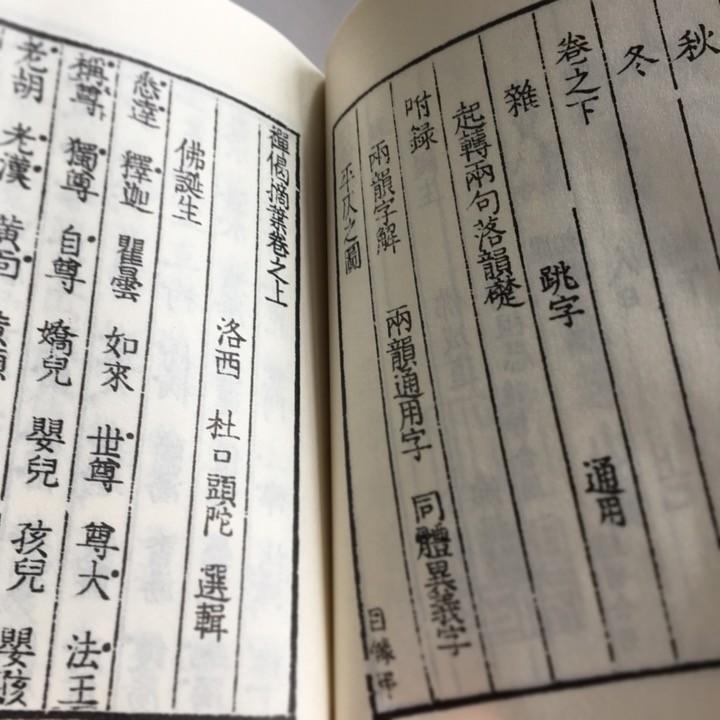 秋
冬
卷之下
雜 跳字 通用
起轉兩句落韻礎
附録
兩韻字解 兩韻通用字 同體異義字
平仄之圖
目録終
禪偈摘葉卷之上
洛西 杜口頭陀 選輯
佛誕生
悉達 釋迦 瞿曇 如來 世尊 尊大 法王
稱尊 獨尊 自尊 嬌兒 嬰兒 孩兒 嬰孩
老胡 老漢 黃面 黃頭